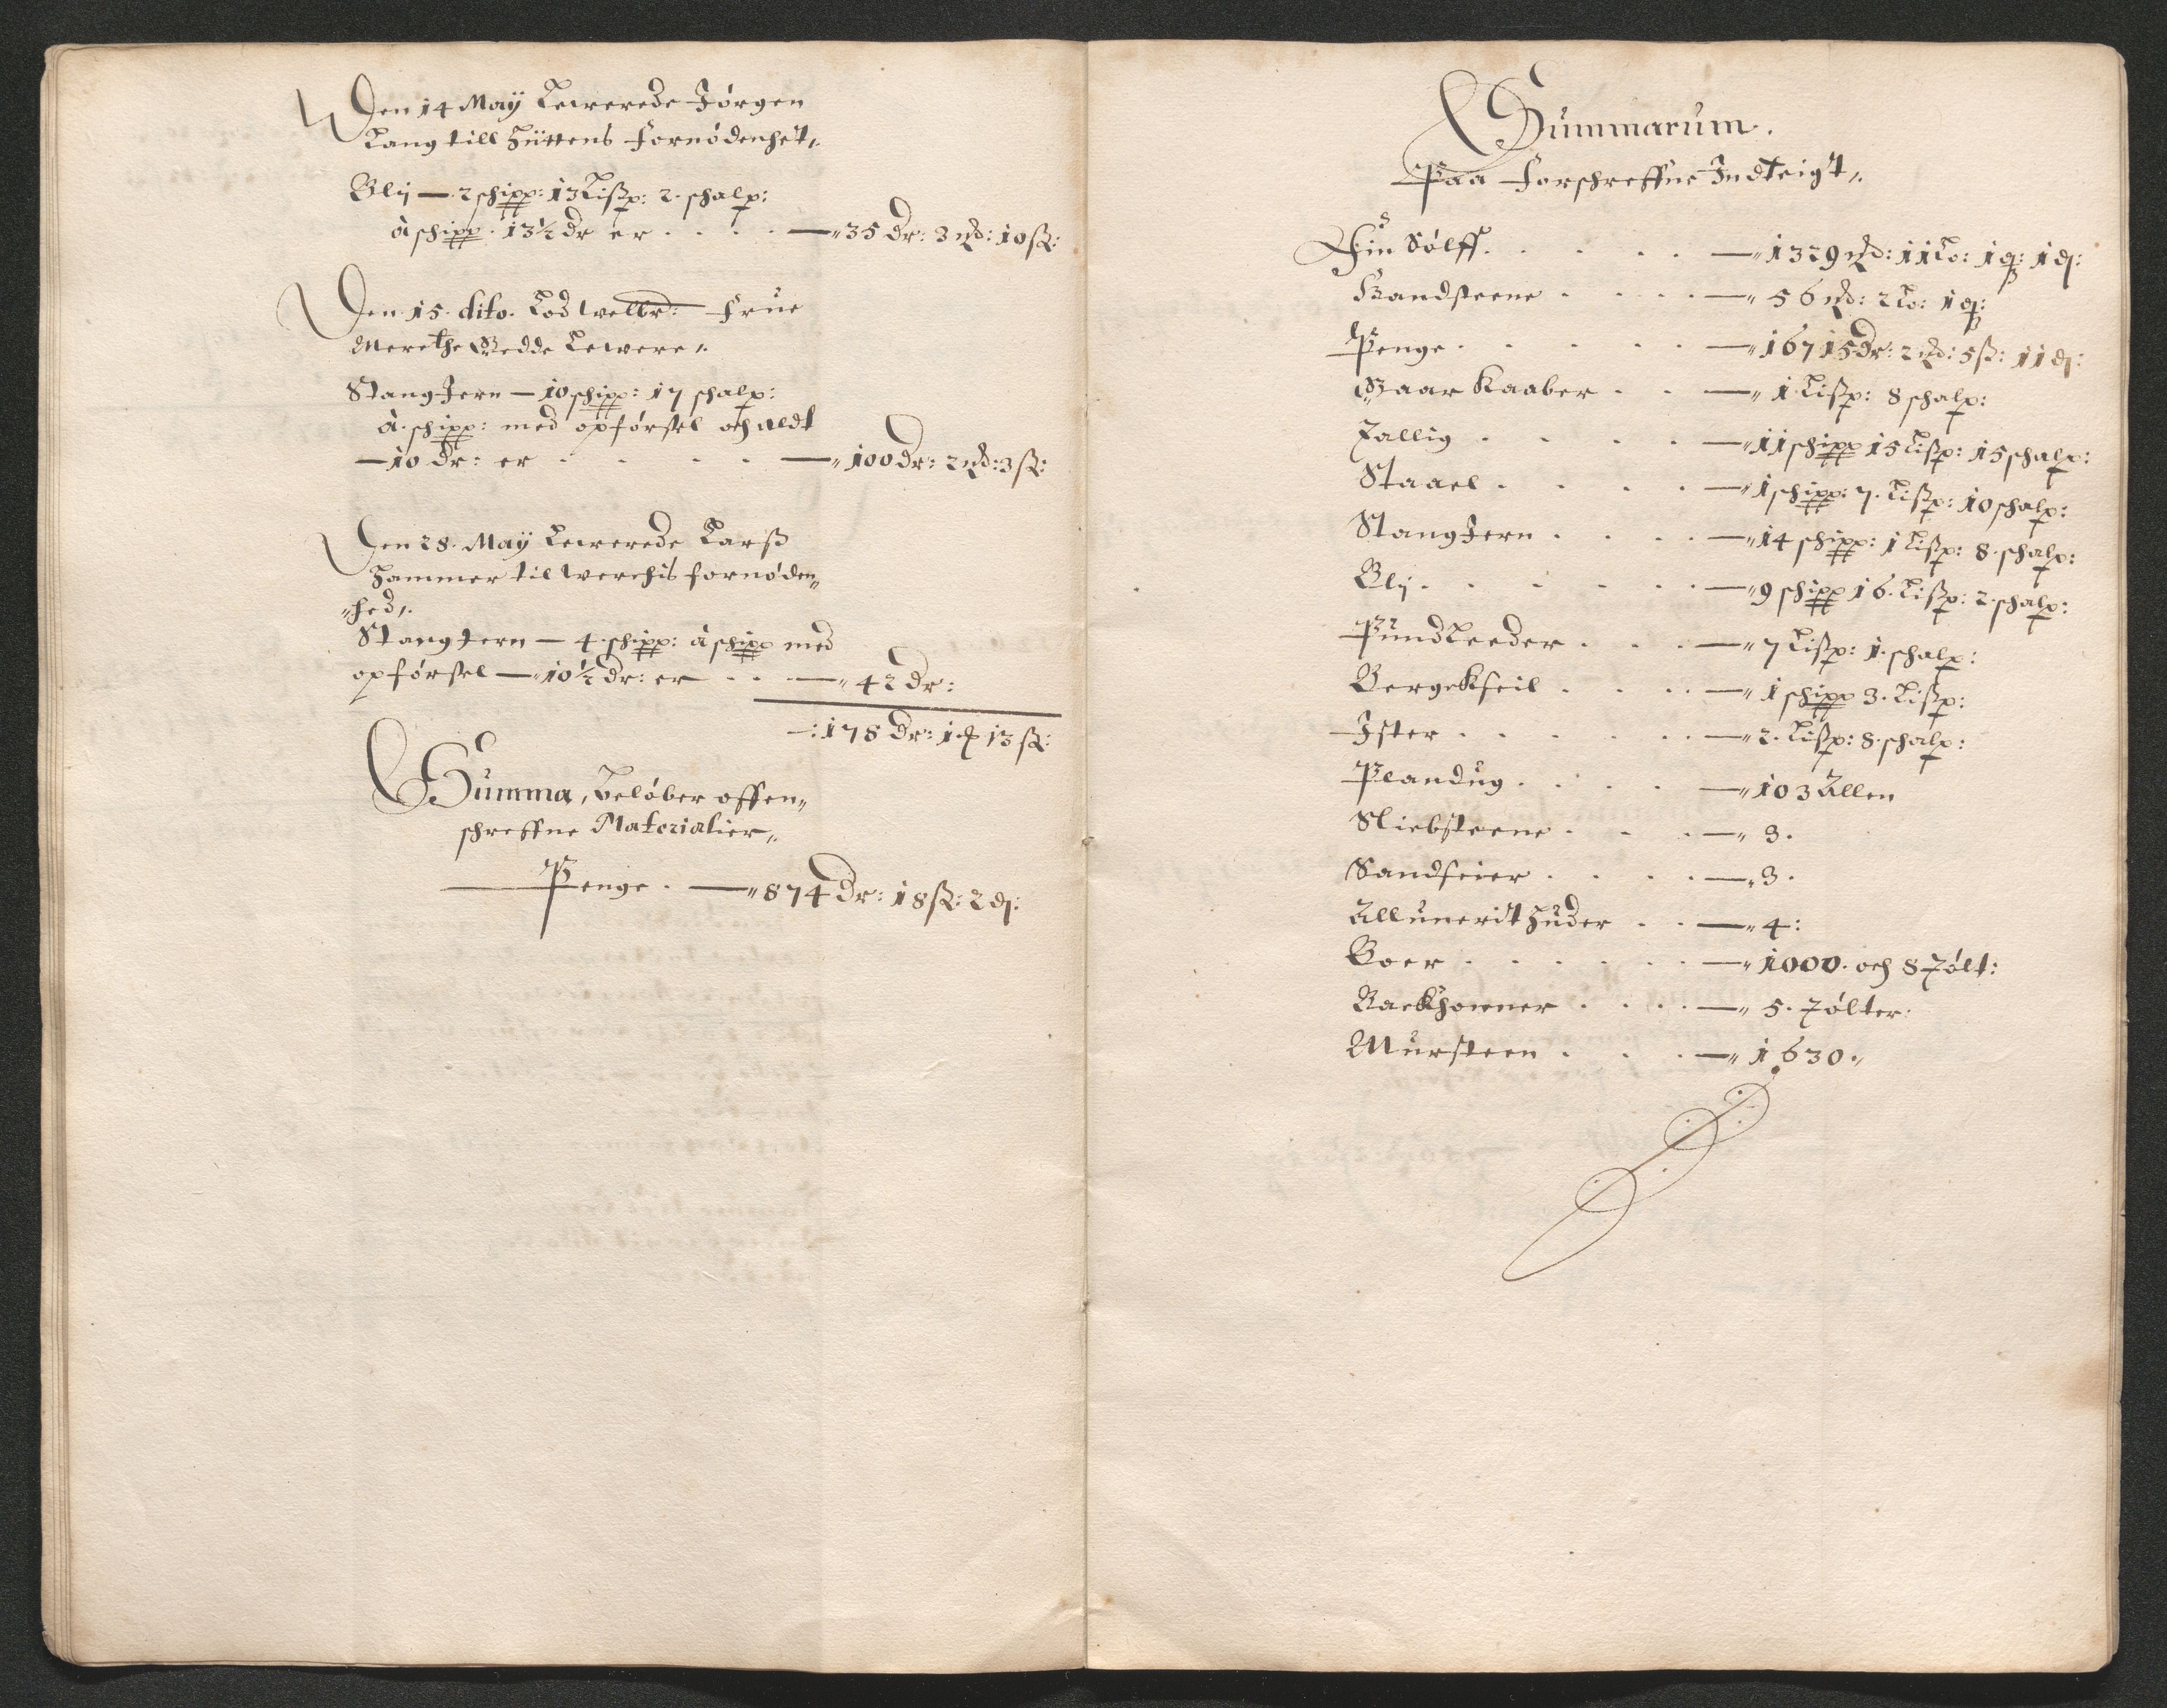 Den 14 Maij Lewerede Jørgen
Lang till Hüttens Fornødenhet,.
Blij — 2 schipp: 13 Lißp: 2. schalp:
à schipp. 13½ Dr er . . . . —„ 35 Dr: 3 mk: 10 ß:
Den 15. dito. Lod welbr: Frue
Merethe Giedde Lewere,.
Stang Jern — 10 schipp: 17 schalp:
à. schipp: med opførsel och aldt
— 10 Dr: er . . . . —„ 100 Dr: 2 mk: 3 ß:
Den 28. Maij Lewerede Larß
Hammer til werchis fornøden„
„hed,.
Stang Jern — 4. schipp: à schipp med
opførsel —„ 10½ Dr: er . . —„ 42 Dr:
—: 178 Dr: 1 13 ß:
Summa, beløber offen„
schreffne Materialier,.
Penge. —„ 874 Dr: 18 ß: 2 d:
Summarum.
Paa Forschreffne Indteigt,.
Fin Sølff. . . . . —„ 1329 mk: 11 Lo: 1 q: 1 d:
Handsteene . . . . —„ 56 mk: 2 Lo: 1 q:
Penge . . . . . —„ 16715 Dr: 2 mk: 5 ß: 11 d:
Gaar Kaaber . . —„ 1. Lißp: 8 schalp:
Tallig . . . . —„ 11 schipp 15 Lißp: 15 schalp:
Staael . . . . —„ 1 schipp: 7. Lißp: 10 schalp:
Stang Jern . . . . —„ 14 schipp: 1 Lißp: 8. schalp:
Blij . . . . . . —„ 9 schipp 16. Lißp: 2. schalp:
Pundleeder . . . —„ 7 Lißp: 1. schalp:
Bergekseil . . . . —„ 1 schipp 3. Lißp:
Ister . . . . . . —„ 2. Lißp: 8. schalp:
Plandug . . . . —„ 103 Allen
Sliebsteene . . . —„ 3.
Sandseier . . . . —„ 3.
Alluneridt Huder . . —„ 4:
Boer . . . . . . —„ 1000. och 8 Tølt:
Backhonner . . . . —„ 5. Tølter:
Mursteen . . . —„ 1630.„